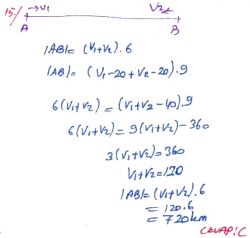 15-) →V1 V2←
A B
|AB| = (V1+V2).6
|AB| = (V1-20+V2-20).9
6(V1+V2) = (V1+V2-40).9
6(V1+V2) = 9(V1+V2)-360
3(V1+V2) = 360
V1+V2 = 120
|AB| = (V1+V2).6
= 120.6
= 720km
CEVAP: C